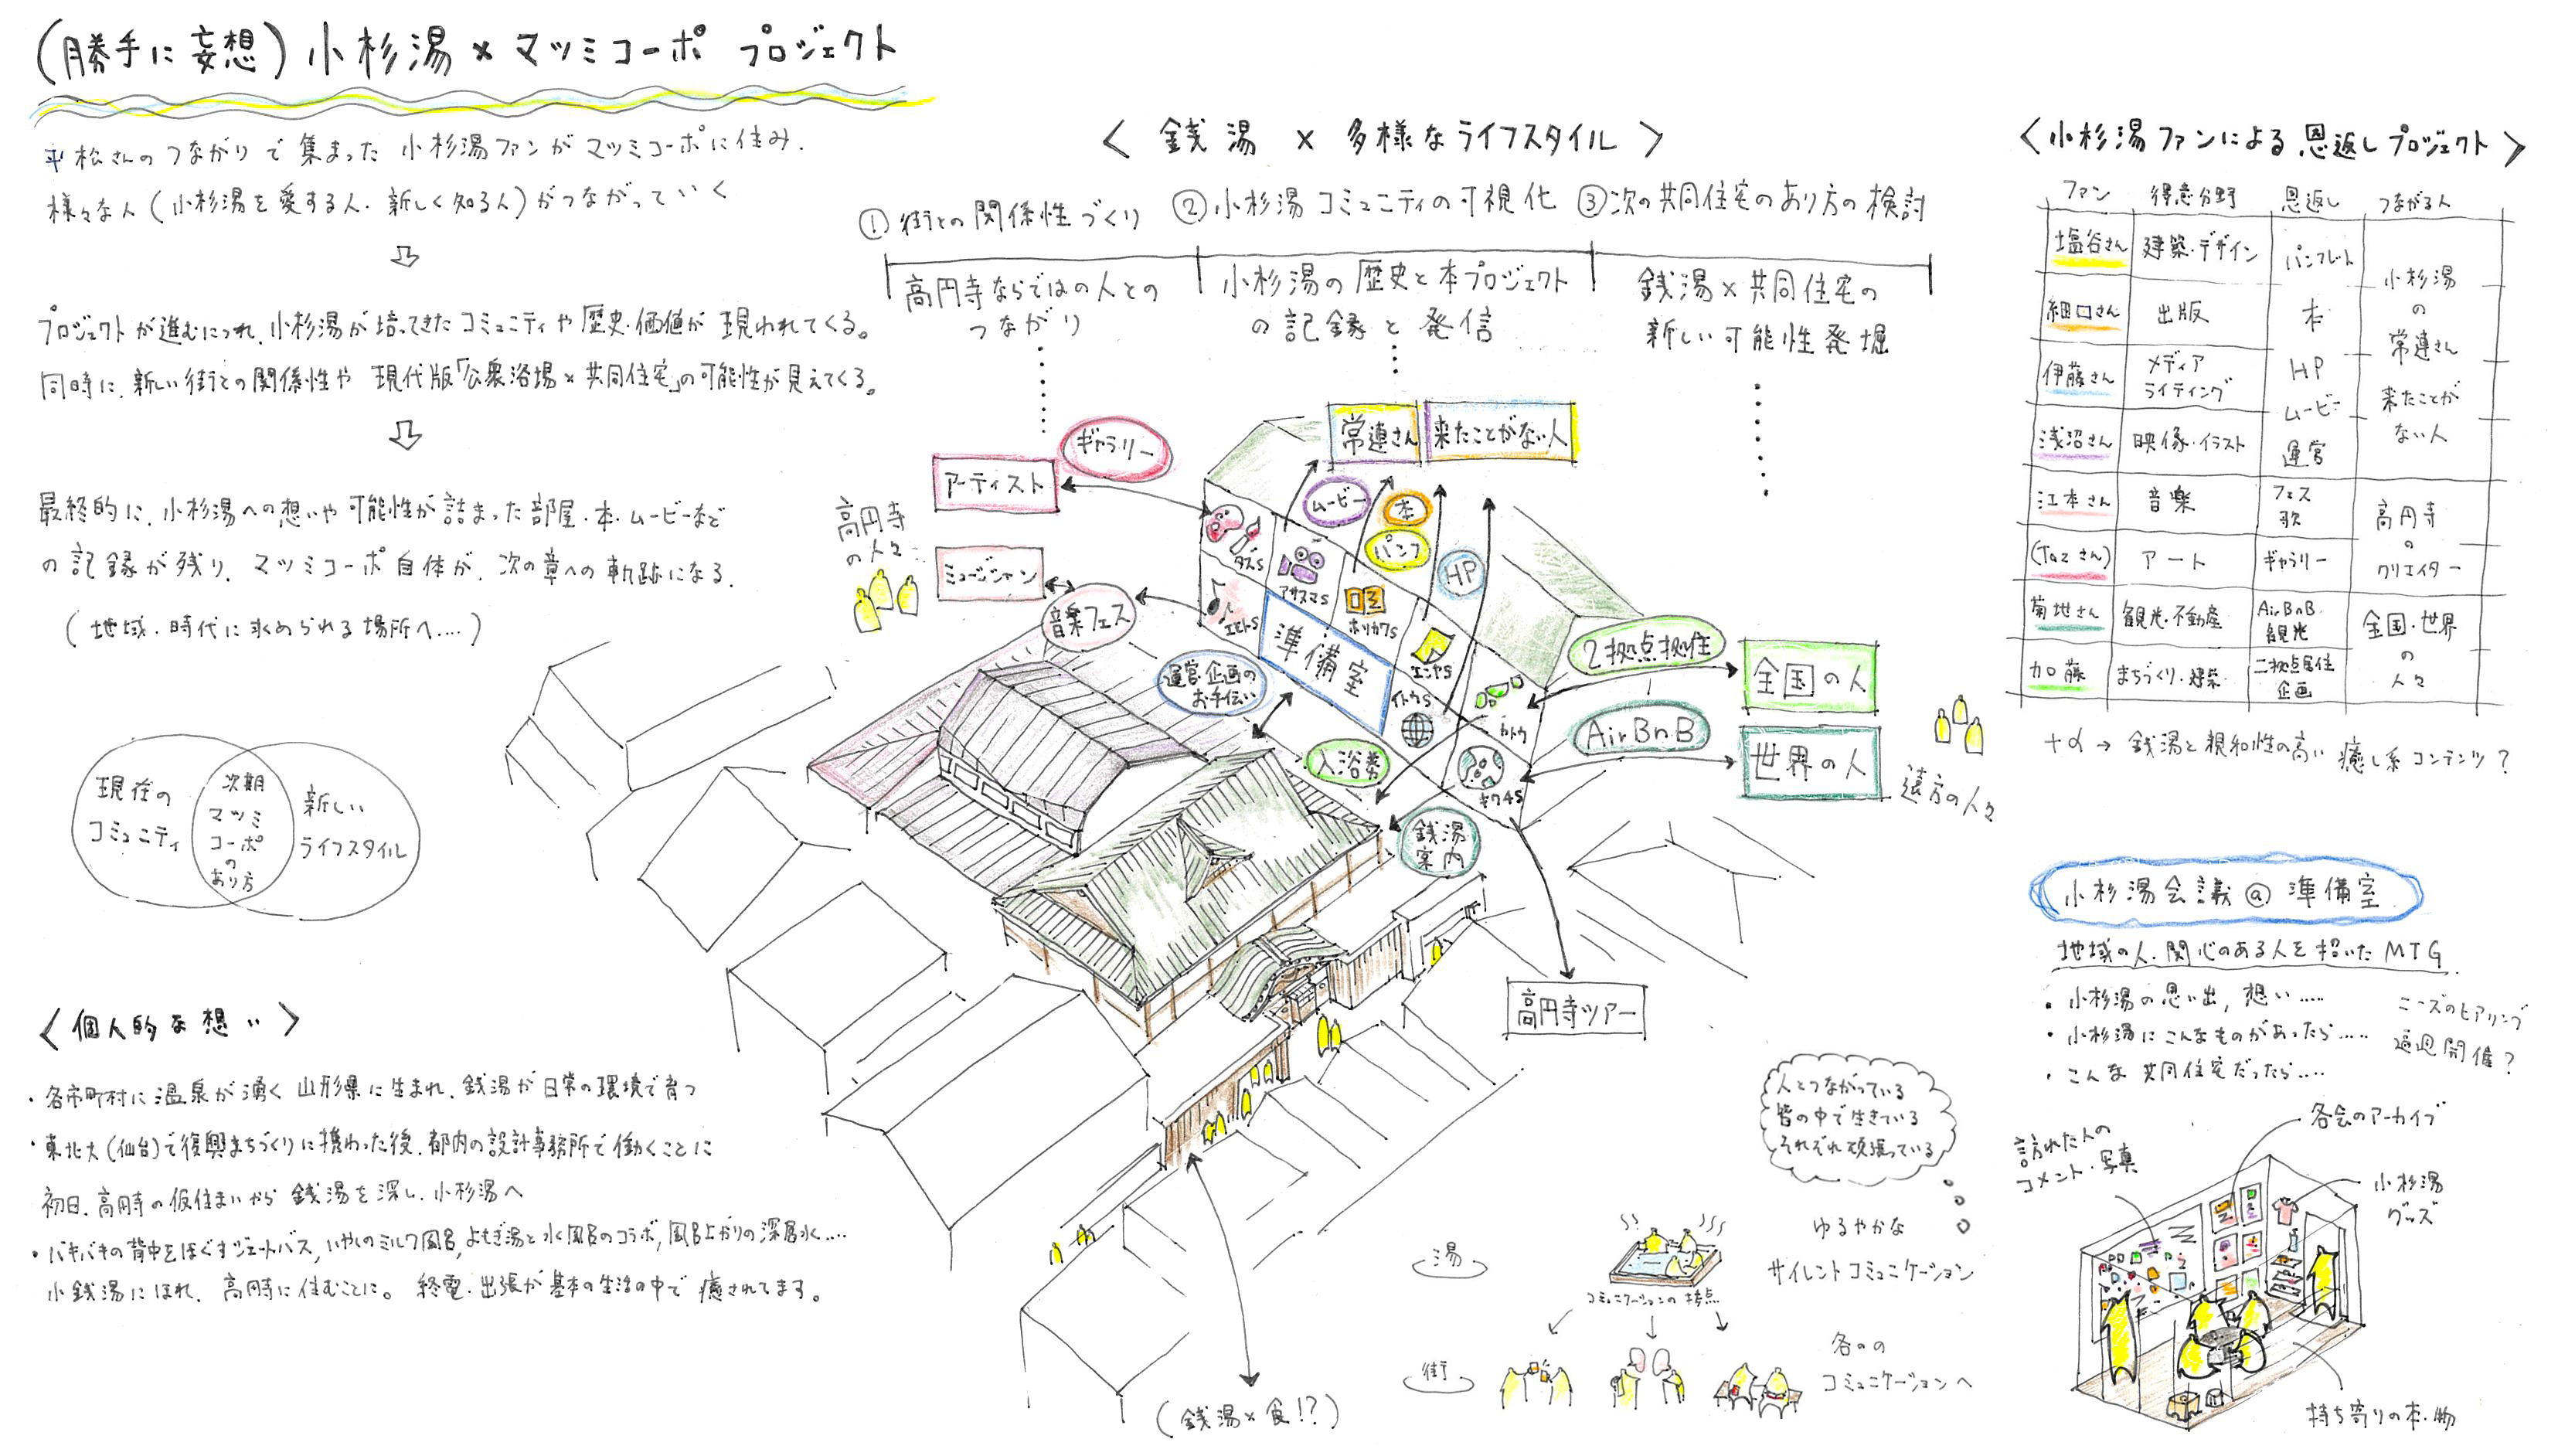 (勝手に妄想) 小杉湯×マツミコーポ プロジェクト
平松さんのつながりで集まった小杉湯ファンがマツミコーポに住み、
様々な人(小杉湯を愛する人、新しく知る人)がつながっていく
プロジェクトが進むにつれ、小杉湯が培ってきたコミュニティや歴史・価値が現われてくる。
同時に、新しい街との関係性や 現代版「公衆浴場×共同住宅」の可能性が見えてくる。
最終的に、小杉湯への想いや可能性が詰まった部屋・本・ムービーなど
の記録が残り、マツミコーポ自体が、次の章への軌跡になる。
(地域・時代に求められる場所へ....)
現在の
コミュニティ
次期
マツミ
コーポ
の
あり方
新しい
ライフスタイル
〈個人的な想い〉
・各市町村に温泉が湧く山形県に生まれ、銭湯が日常の環境で育つ
・東北大(仙台)で復興まちづくりに携わった後、都内の設計事務所で働くことに
初日、高円寺の仮住まいから銭湯を探し、小杉湯へ
・バキバキの背中をほぐすジェットバス, いやしのミルク風呂, よもぎ湯と水風呂のコラボ, 風呂上がりの深層水....
小銭湯にほれ、高円寺に住むことに。 終電・出張が基本の生活の中で癒されてます。
〈銭湯 × 多様なライフスタイル〉
①街との関係性づくり
②小杉湯コミュニティの可視化
③次の共同住宅のあり方の検討
高円寺ならではの人との
つながり
小杉湯の歴史と本プロジェクト
の記録と発信
銭湯×共同住宅の
新しい可能性発掘
ギャラリー
アーティスト
高円寺
の人々
ミュージシャン
音楽フェス
常連さん
来たことがない人
ムービー
本
パンフ
HP
タズs
アサヌマs
エモトs
ホソカワs
エンヤs
イトウs
カトウ
キクチs
準備室
運営・企画の
お手伝い
入浴券
銭湯
案内
2拠点拠住
全国の人
AirBnB
世界の人
遠方の人々
高円寺ツアー
(銭湯×食!?)
人とつながっている
皆の中で生きている
それぞれ頑張っている
湯
コミュニケーションの接点
ゆるやかな
サイレントコミュニケーション
街
各々の
コミュニケーションへ
〈小杉湯ファンによる恩返しプロジェクト〉
ファン 得意分野 恩返し つながる人
塩谷さん 建築・デザイン パンフレット
細口さん 出版 本
伊藤さん メディア ライティング HP
浅沼さん 映像・イラスト ムービー 運営
小杉湯
の
常連さん
来たことが
ない人
江本さん 音楽 フェス 歌
(Tazさん) アート ギャラリー
高円寺
の
クリエイター
菊地さん 観光・不動産 AirBnB 観光
加藤 まちづくり・建築 二拠点居住 企画
全国・世界
の
人々
+α → 銭湯と親和性の高い 癒し系コンテンツ?
小杉湯会議@準備室
地域の人、関心のある人を招いたMTG
・小杉湯の思い出, 想い.....
・小杉湯にこんなものがあったら.....
・こんな共同住宅だったら....
ニーズのヒアリング
隔週開催?
訪れた人の
コメント・写真
各会のアーカイブ
小杉湯
グッズ
持ち寄りの本・物